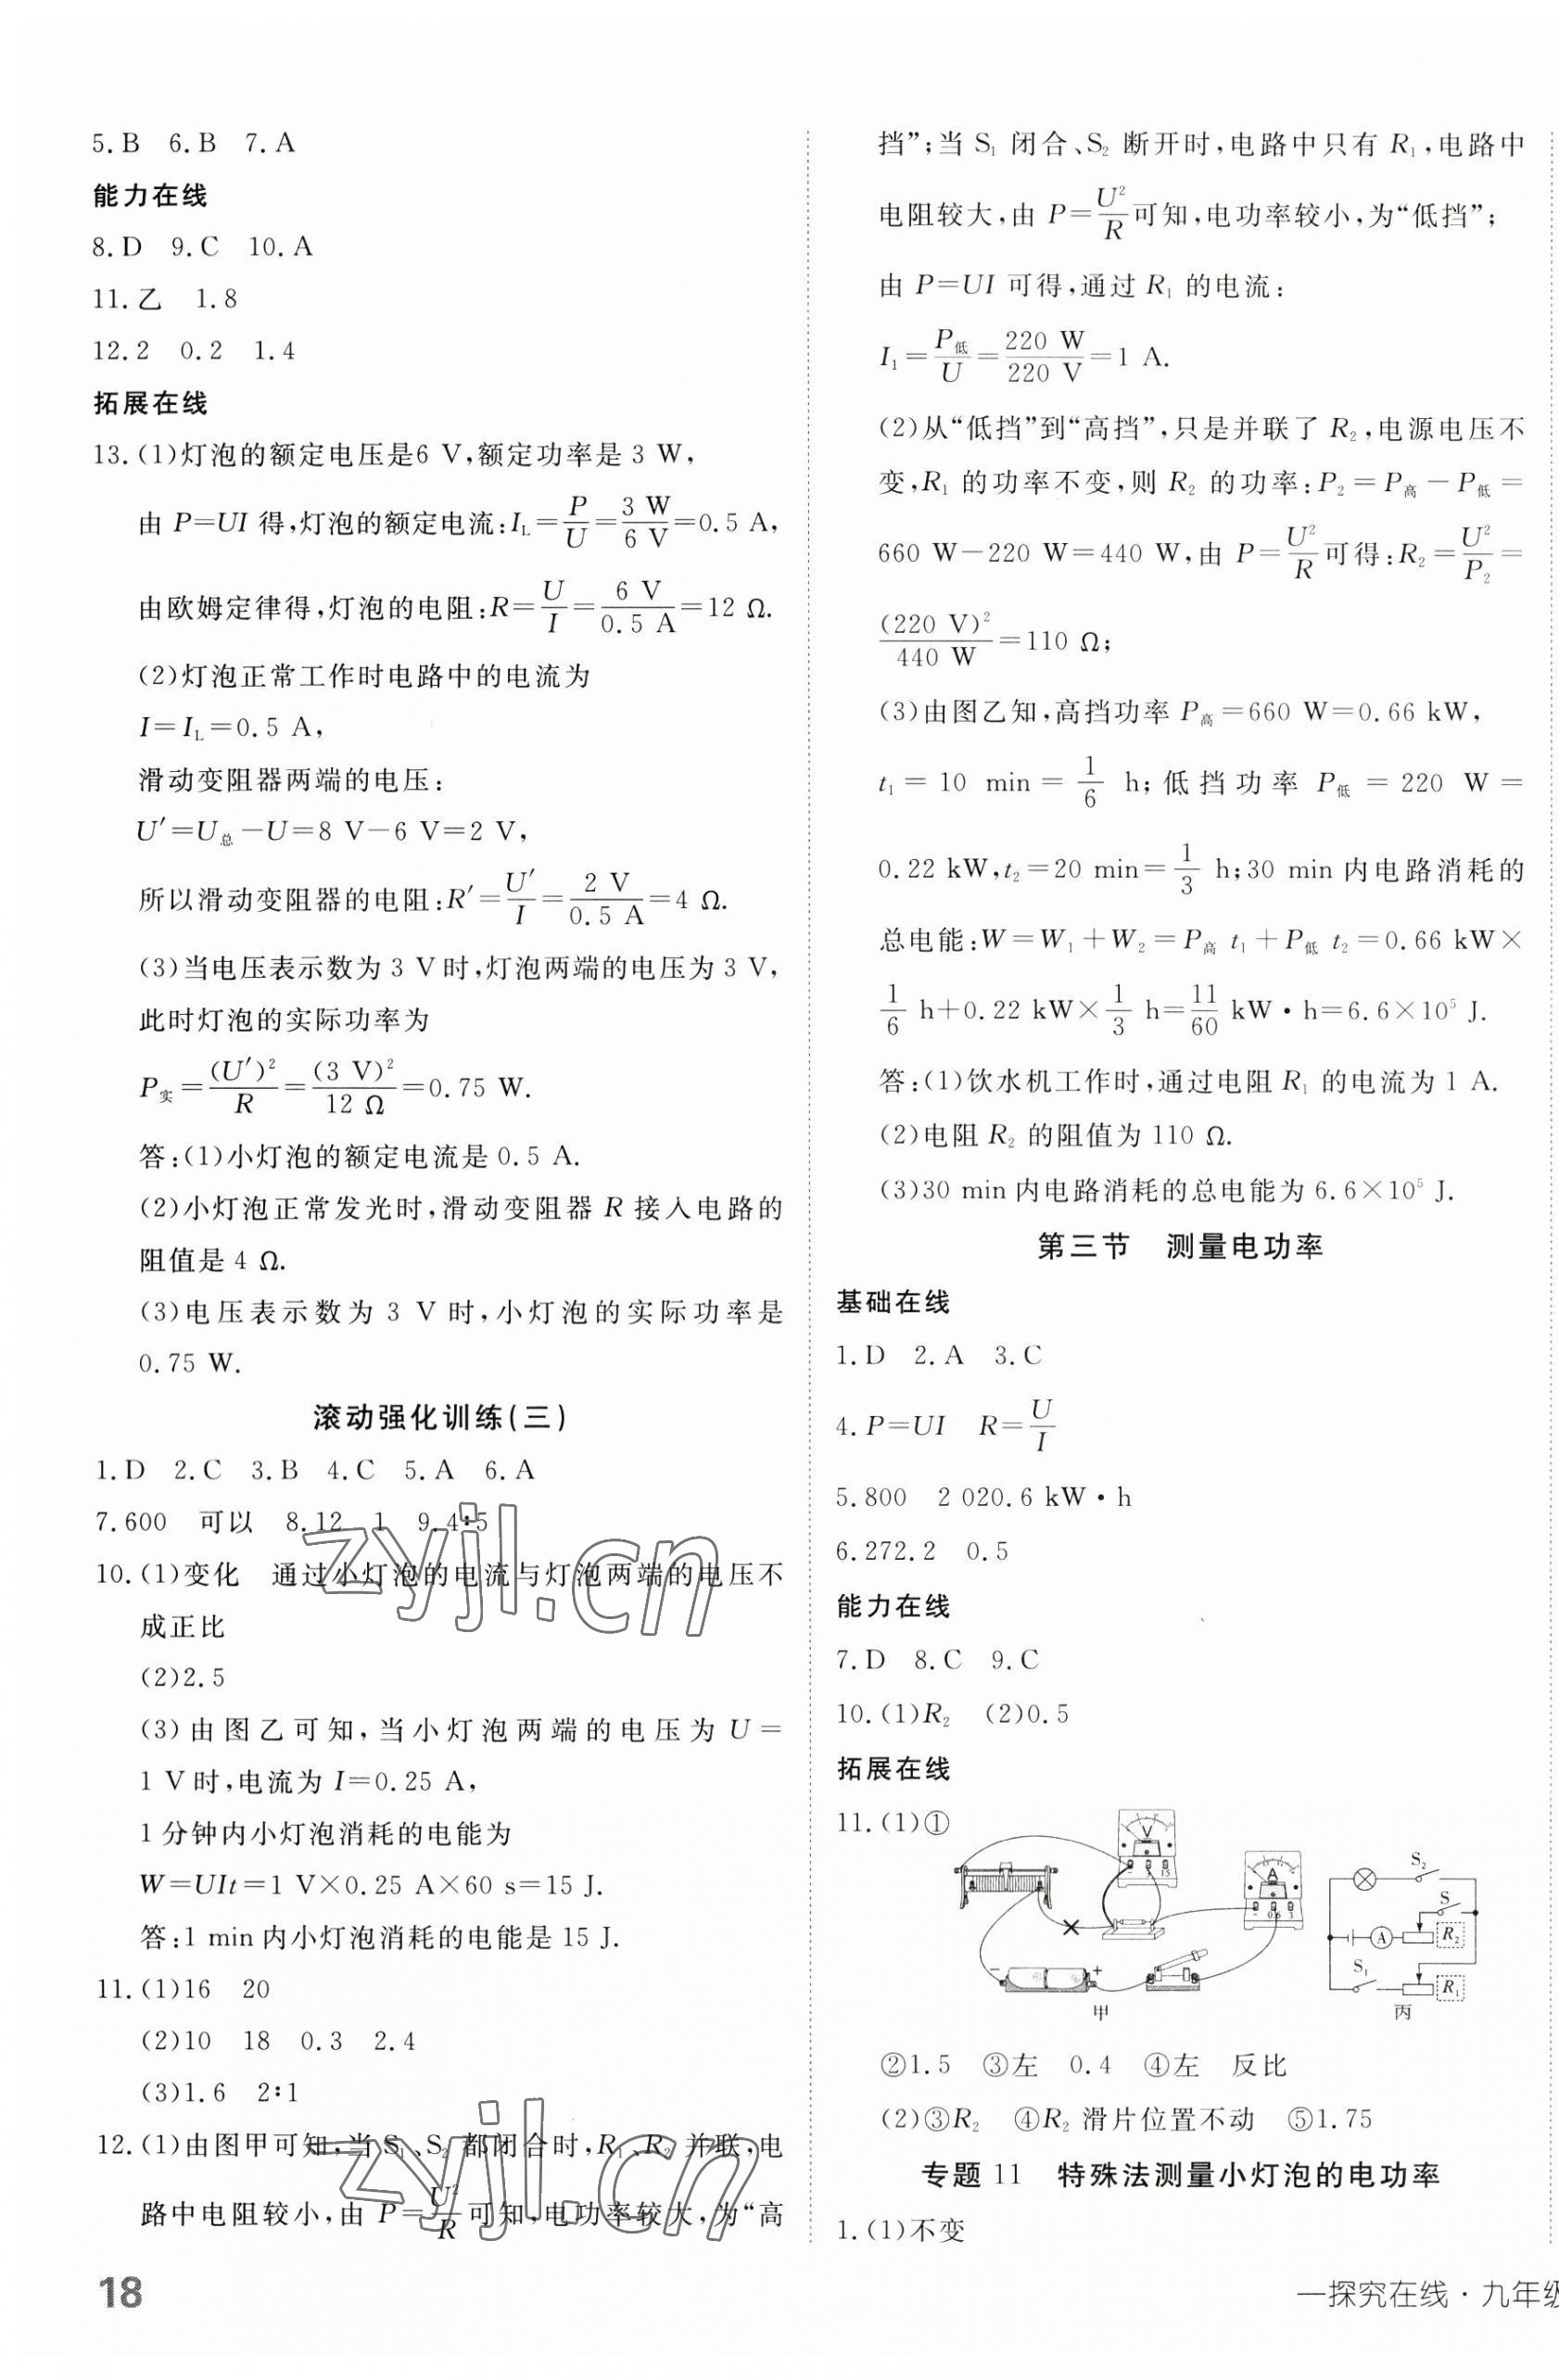 5.B 6.B 7.A
能力在线
8.D 9.C 10.A
11.乙 1.8
12.2 0.2 1.4
拓展在线
13.(1)灯泡的额定电压是6 V,额定功率是 3 W,
由 P=UI 得,灯泡的额定电流:I_L=P/U=3 W/6 V=0.5 A,
由欧姆定律得,灯泡的电阻:R=U/I=6 V/0.5 A=12 Ω.
(2)灯泡正常工作时电路中的电流为
I=I_L=0.5 A,
滑动变阻器两端的电压:
U′=U总-U=8 V-6 V=2 V,
所以滑动变阻器的电阻:R′=U′/I=2 V/0.5 A=4 Ω.
(3)当电压表示数为 3 V 时,灯泡两端的电压为 3 V,
此时灯泡的实际功率为
P实=(U′)²/R=(3 V)²/12 Ω=0.75 W.
答:(1)小灯泡的额定电流是 0.5 A.
(2)小灯泡正常发光时,滑动变阻器 R 接入电路的
阻值是 4 Ω.
(3)电压表示数为 3 V 时,小灯泡的实际功率是
0.75 W.
滚动强化训练(三)
1.D 2.C 3.B 4.C 5.A 6.A
7.600 可以 8.12 1 9.4∶5
10.(1)变化 通过小灯泡的电流与灯泡两端的电压不
成正比
(2)2.5
(3)由图乙可知,当小灯泡两端的电压为 U=
1 V时,电流为 I=0.25 A,
1分钟内小灯泡消耗的电能为
W=UIt=1 V×0.25 A×60 s=15 J.
答:1 min内小灯泡消耗的电能是 15 J.
11.(1)16 20
(2)10 18 0.3 2.4
(3)1.6 2∶1
12.(1)由图甲可知,当 S₁、S₂ 都闭合时,R₁、R₂ 并联,电
路中电阻较小,由 P=U²/R可知,电功率较大,为“高
18
挡”;当 S₁ 闭合、S₂ 断开时,电路中只有 R₁,电路中
电阻较大,由 P=U²/R可知,电功率较小,为“低挡”;
由 P=UI 可得,通过 R₁ 的电流:
I₁=P低/U=220 W/220 V=1 A.
(2)从“低挡”到“高挡”,只是并联了 R₂,电源电压不
变,R₁ 的功率不变,则 R₂ 的功率:P₂=P高-P低=
660 W-220 W=440 W,由 P=U²/R可得:R₂=U²/P₂=
(220 V)²/440 W=110 Ω;
(3)由图乙知,高挡功率 P高=660 W=0.66 kW,
t₁=10 min=1/6 h;低挡功率 P低=220 W=
0.22 kW,t₂=20 min=1/3 h;30 min内电路消耗的
总电能:W=W₁+W₂=P高 t₁+P低 t₂=0.66 kW×
1/6 h+0.22 kW×1/3 h=11/60 kW·h=6.6×10⁵ J.
答:(1)饮水机工作时,通过电阻 R₁ 的电流为 1 A.
(2)电阻 R₂ 的阻值为 110 Ω.
(3)30 min内电路消耗的总电能为 6.6×10⁵ J.
第三节 测量电功率
基础在线
1.D 2.A 3.C
4.P=UI R=U/I
5.800 2 020.6 kW·h
6.272.2 0.5
能力在线
7.D 8.C 9.C
10.(1)R₂ (2)0.5
拓展在线
11.(1)①
V
- 3 15
A
- 0.6 3
- +
甲
S₂
S
A R₂
S₁
R₁
丙
②1.5 ③左 0.4 ④左 反比
(2)③R₂ ④R₂ 滑片位置不动 ⑤1.75
专题 11 特殊法测量小灯泡的电功率
1.(1)不变
一探究在线·九年级
zyjl.cn
zyjl.cn